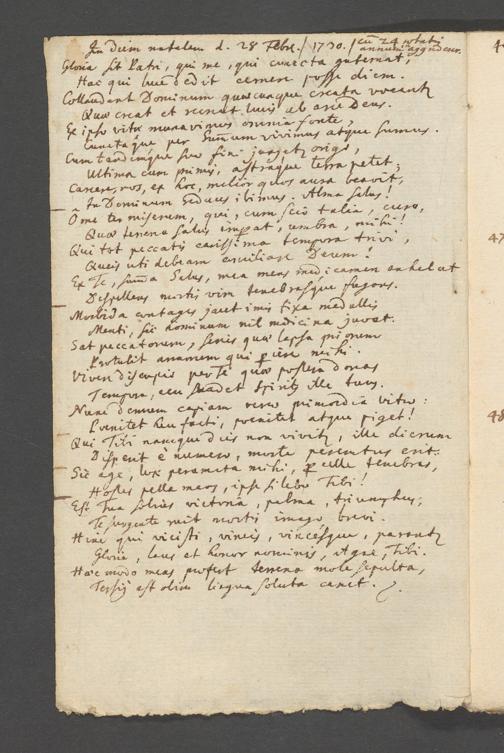 In diem natalem d. 28 Febr. / 1730. / cū 24 ætatis
annum aggrederer.
Gloria sit Patri, qui me, qui cuncta gubernat,
Hac qui luce dedit cernere posse diem.
Collaudent Dominum quæcunque creata vocantr
Quæ creat et recreat luci ab arce Deus.
Ex ipso vitæ manavimus omnia fonte,
Cunctaque per summum vivimus atque sumus.
Cum tandemque suo fini jungetr origo,
Ultima cum primis, astraque terra petet;
Carcere, vos, ex hoc, melior quos aura beavit,
In Dominum ibimus. Alma Salus!
O me ter miserum, qui, cum scio talia, curo,
Quæ terrena salus umbra, mihi!
Qui tot peccatis carissima tempora trivi,
Queis uti debeam conciliare Deum!
Ex Te, summa Salus, mea mens medicamen anhelat
Depellens mortis vim tenebrasque fugans.
Morbida contages jacet imis fixa medullis
Menti, sic hominum nil medicina juvat.
Sat peccatorum, series quæ lapsa priorum
Protulit annorum qui periere mihi.
Vivere per Te quæ postera donas
Tempora, ceu suadet Spirits ille tuus.
Nunc demum capiam veræ primordia vitæ:
Poenitet heu facti, poenitet atque piget!
Qui Tibi namque dies non vivitr, ille dierum
Disperit è numero, morte peremtus erit.
Sic age, lux peramata mihi, percelle tenebras,
Hostes pelle meos, ipse Tibi!
Est Tua solius victoria, palma, triumphus;
Te surgente ruit mortis imago brevi.
Hinc qui vicisti, vincis, vincesque, parantr
Gloria, laus et honor nominis, atque, Tibi.
Hæc modo mens profert terrenâ mole sepulta,
est olim lingua soluta canet.